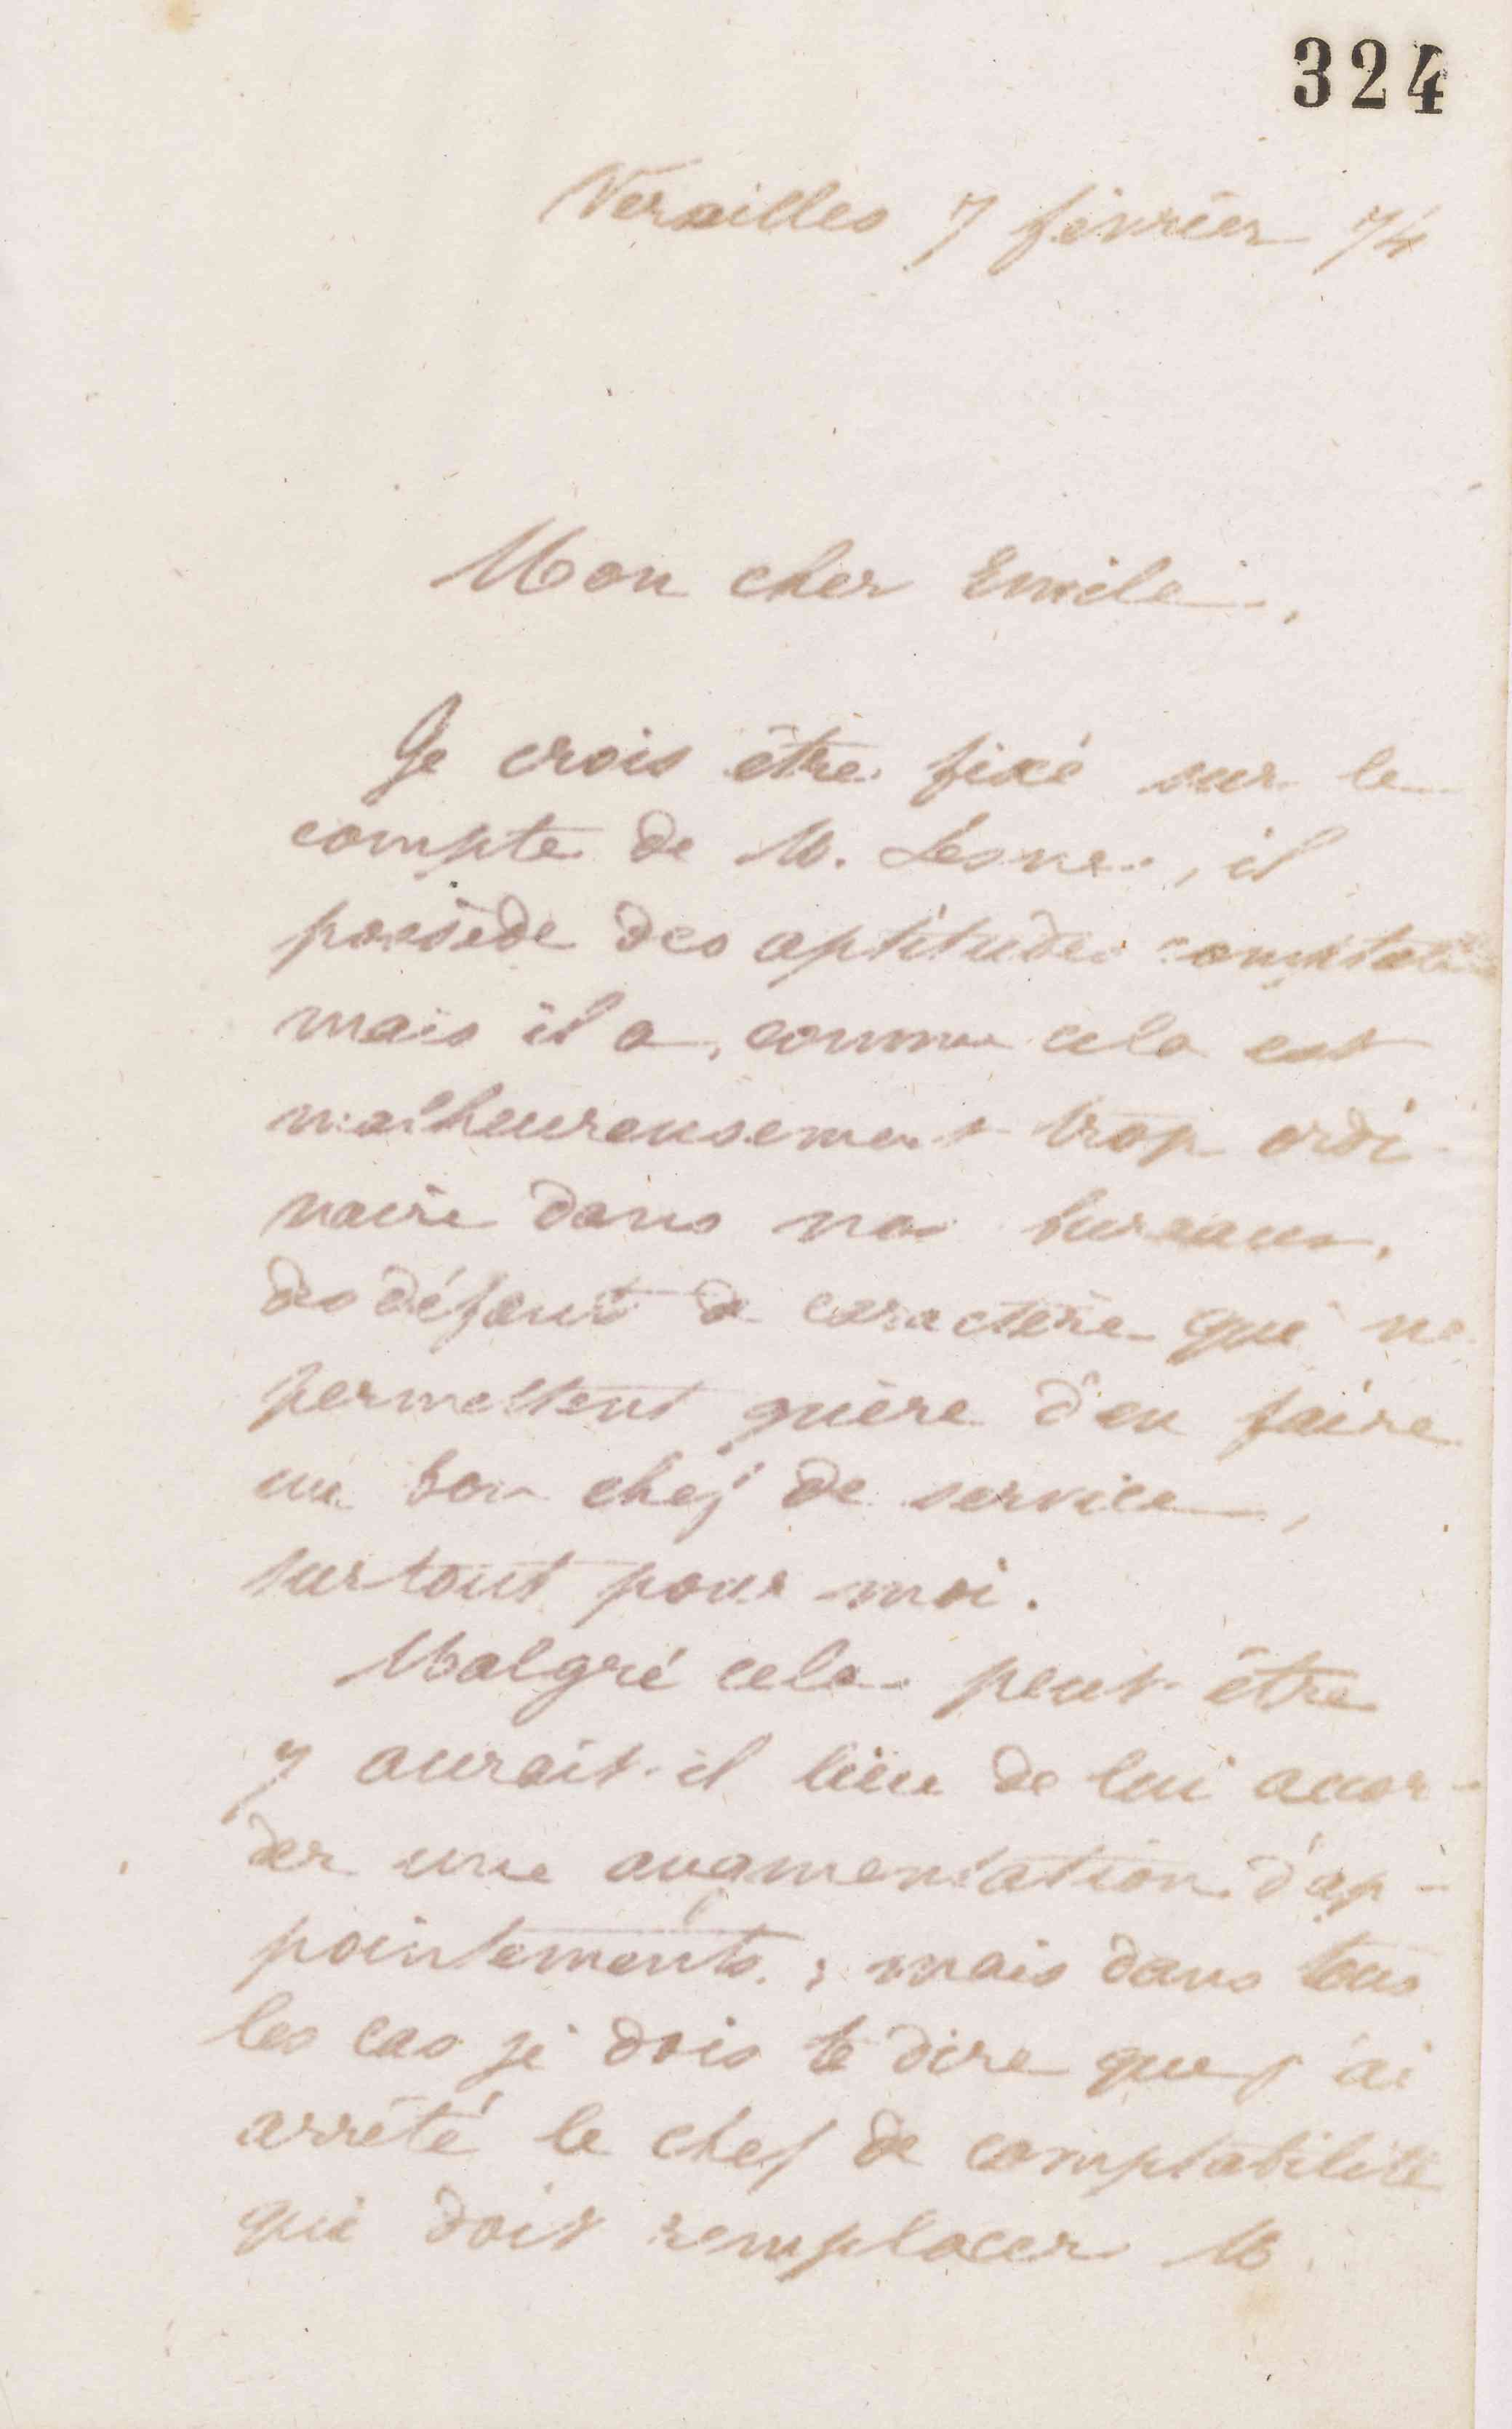 324
Versailles 7 février 74
Mon cher Emile,
Je crois être fixé sur le
compte de M. Lesne, il
possède des aptitudes comptables
mais il a, comme cela est
malheureusement trop ordi
naire dans nos bureaux,
des défauts de caractère qui ne
permettent guère d'en faire
un bon chef de service,
surtout pour moi.
Malgré cela peut être
y aurait-il lieu de lui accor-
der une augmentation d'ap-
pointements ; mais dans tous
les cas je dois te dire que j'ai
arrêté le chef de comptabilité
qui doit remplacer M.